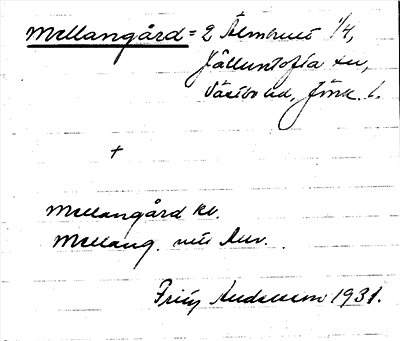 Mellangård = 2 Älmhult 1/4,
Källuntofta sn,
Västbo hd, Jönk. l.
+
Mellangård kv.
Mellang.
Fritz Andersson 1931.